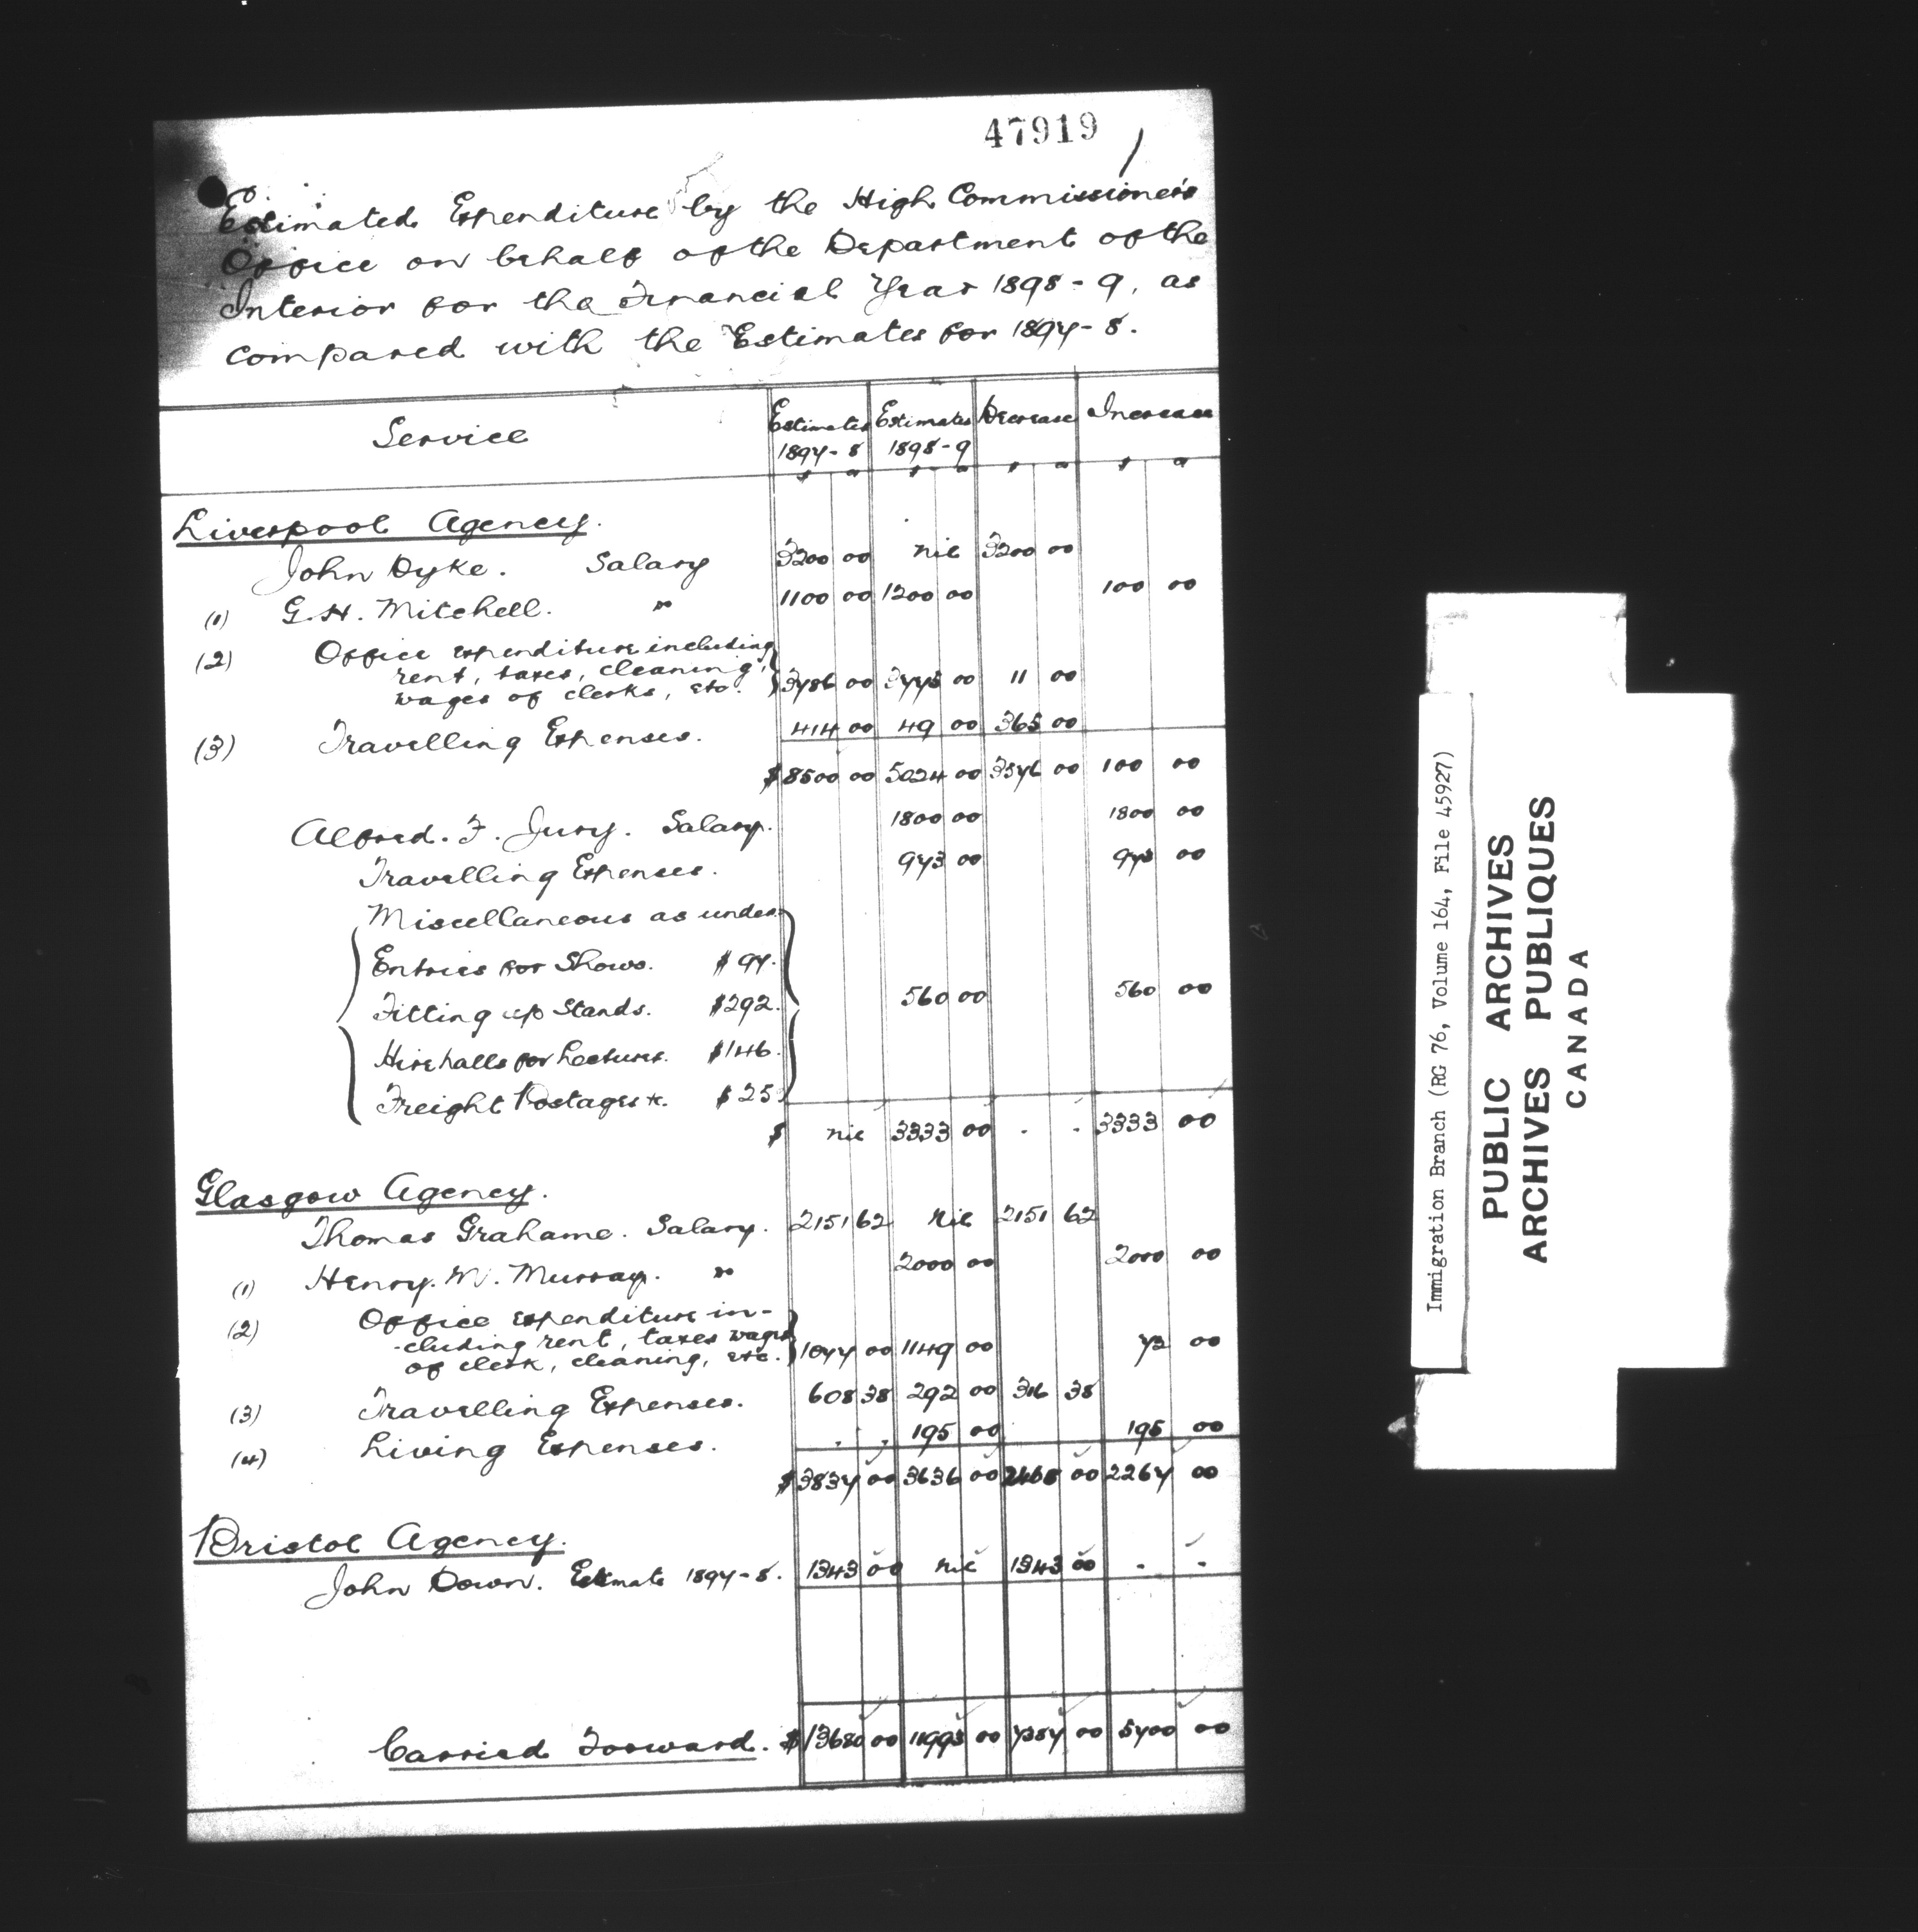 47919
Estimated Expenditure by the High Commissioner's
Office on behalf of the Department of the
Interior for the Financial Year 1898-9, as
compared with the Estimates for 1897-8.
Service Estimates 1897-8 Estimates 1898-9 Decrease Increase
$ c $ c $ c $ c
Liverpool Agency.
John Dyke. Salary 3200 00 nil 3200 00
(1) G. H. Mitchell. " 1100 00 1200 00 100 00
(2) Office expenditure including
rent, taxes, cleaning,
wages of clerks, etc. 3786 00 3775 00 11 00
(3) Travelling Expenses. 414 00 49 00 365 00
$ 8500 00 5024 00 3576 00 100 00
Alfred. F. Jury. Salary. 1800 00 1800 00
Travelling Expenses. 973 00 973 00
Miscellaneous as under
Entries for Shows. $97.
Fitting up Stands. $292. 560 00 560 00
Hire halls for Lectures. $146.
Freight Postages &c. $25
$ nil 3333 00 . . 3333 00
Glasgow Agency.
Thomas Grahame. Salary. 2151 62 Nil 2151 62
(1) Henry. M. Murray. " 2000 00 2000 00
(2) Office expenditure in-
cluding rent, taxes wages
of clerk, cleaning, etc. 1077 00 1149 00 72 00
(3) Travelling Expenses. 608 38 292 00 316 38
(4) Living Expenses. . . 195 00 195 00
$ 3837 00 3636 00 2468 00 2267 00
Bristol Agency.
John Down. Estimate 1897-8. 1343 00 Nil 1343 00 - -
Carried Forward. $ 13680 00 11993 00 7387 00 5700 00
Immigration Branch (RG 76, Volume 164, File 45927)
PUBLIC ARCHIVES
ARCHIVES PUBLIQUES
CANADA